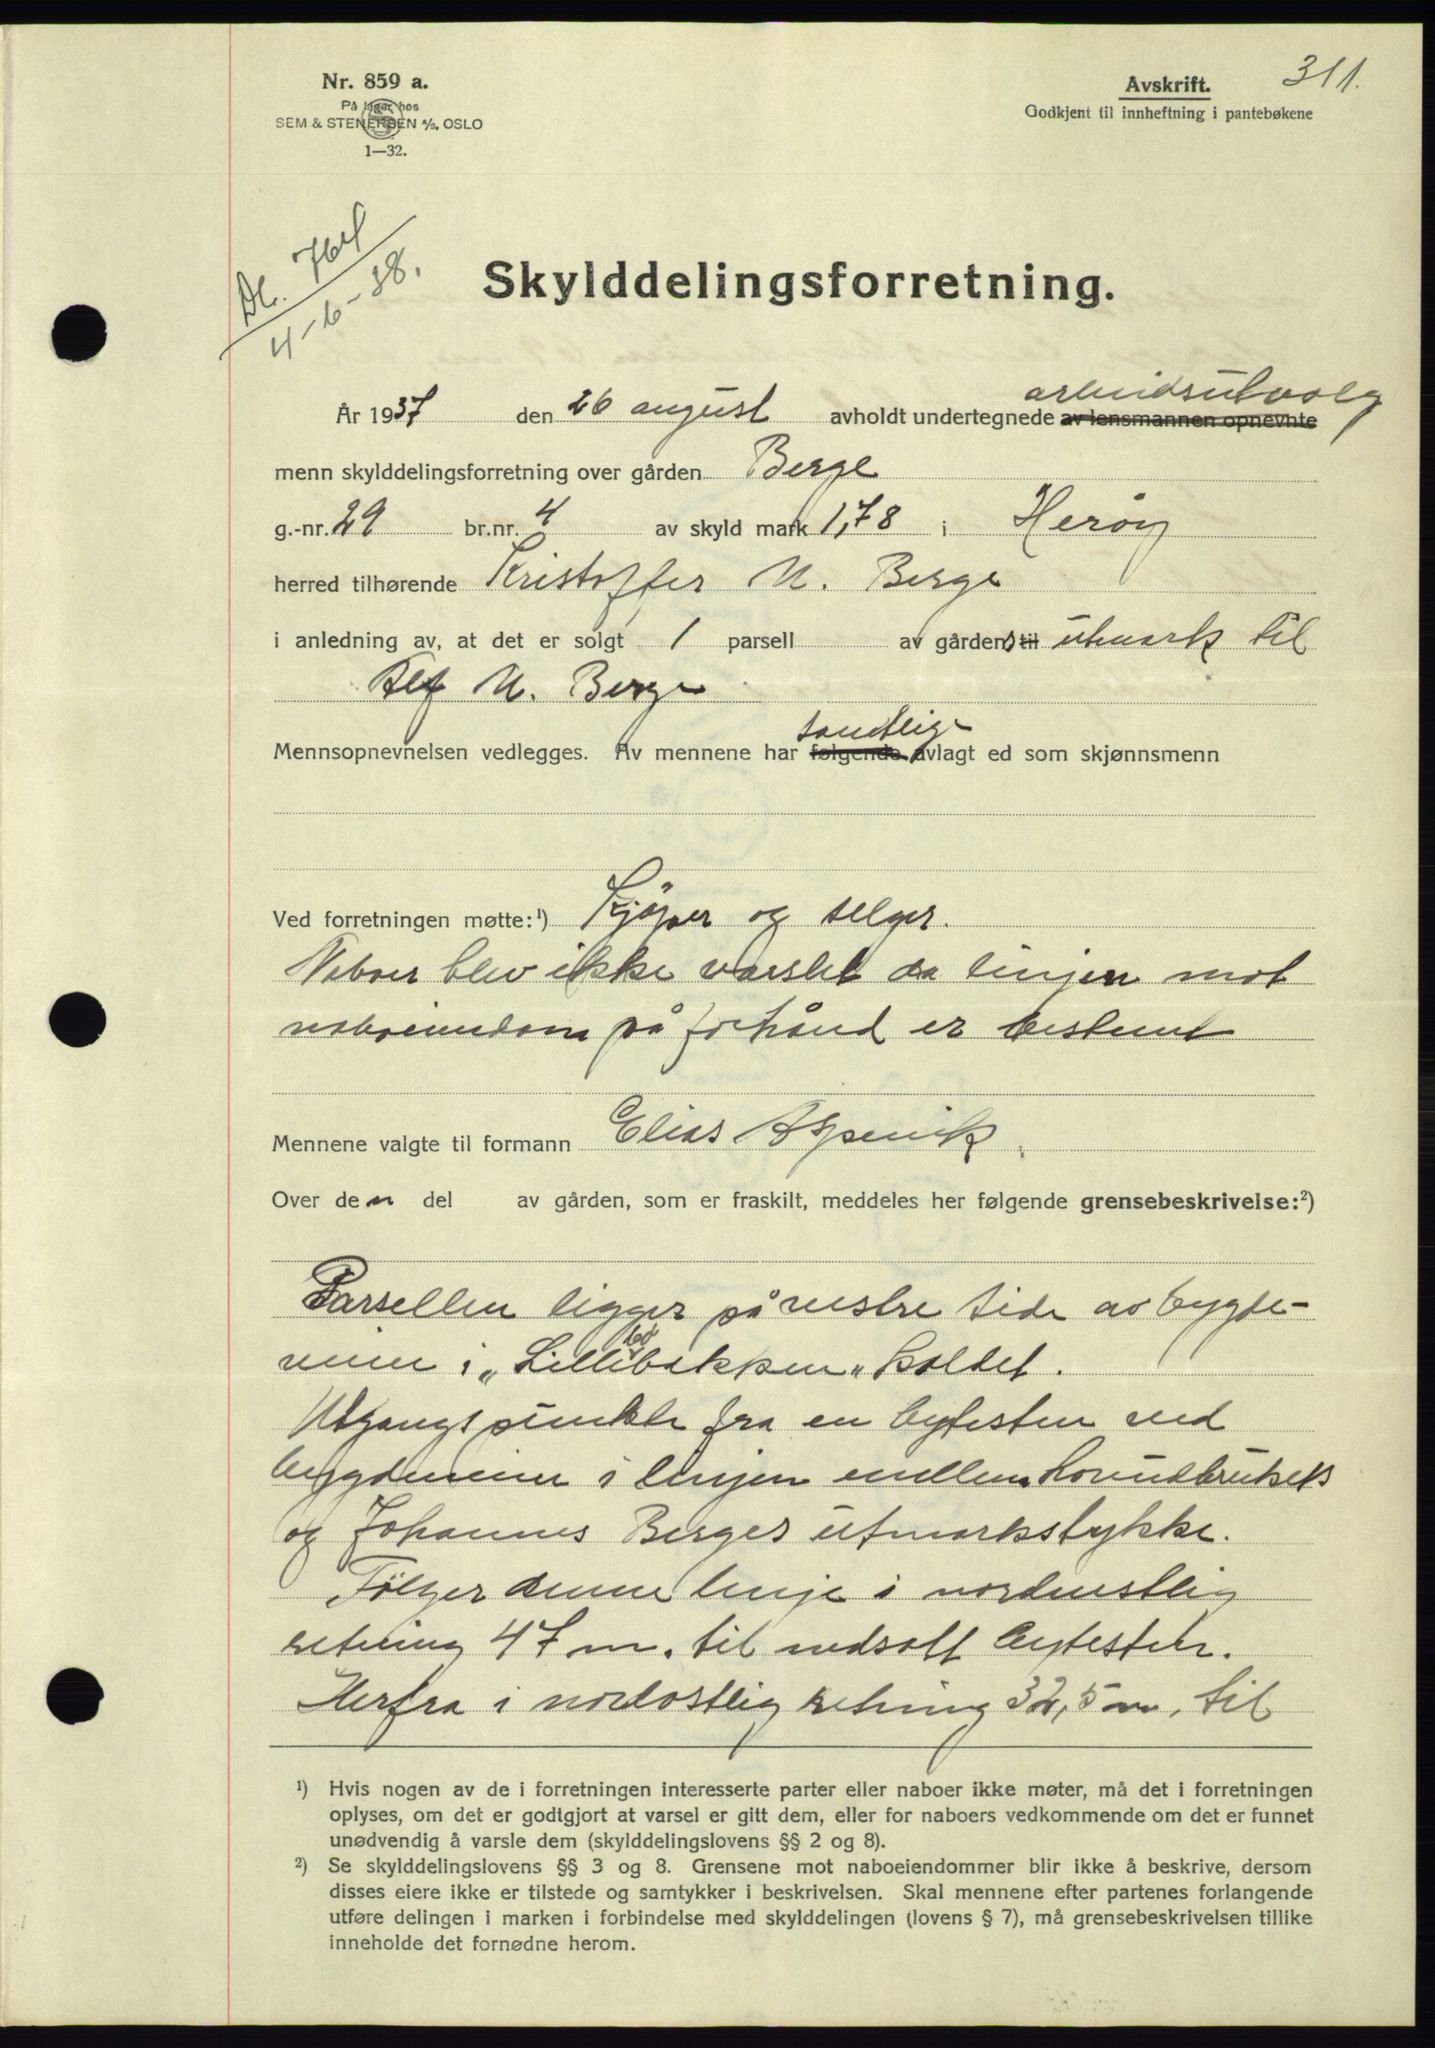 Nr. 859 a.
På lager hos
SEM & STENERSEN A/S, OSLO
1—32.
Avskrift.
Godkjent til innheftning i pantebøkene
311.
Dl.
4-6-38.
Skylddelingsforretning.
arbeidsutvalg
År 1937 den 26 august avholdt undertegnede av lensmannen opnevnte
menn skylddelingsforretning over gården Berge
g.-nr. 29 br.nr. 4 av skyld mark 1,78 i Herøy
herred tilhørende Kristoffer N. Berge
i anledning av, at det er solgt 1 parsell av gårdens til utmark til
Alf N. Berge
samtlige
Mennsopnevnelsen vedlegges. Av mennene har følgende avlagt ed som skjønnsmenn
Ved forretningen møtte:¹) Kjøper og selger.
Naboer blev ikke varslet da linjen mot
naboeiendom på forhånd er bestemt
Mennene valgte til formann Elias Aspevik
Over den del av gården, som er fraskilt, meddeles her følgende grensebeskrivelse:²)
Parsellen ligger på vestre side av bygde-
veien i „Lillebøbakken" kaldet.
Utgangspunkt fra en bytesten ved
bygdeveien i linjen mellem hovedbrukets
og Johannes Berges utmarkstykke.
Følger denne linje i nordvestlig
retning 47 m. til nedsatt bytesten.
Herfra i nordostlig retning 32,5 m. til
¹) Hvis nogen av de i forretningen interesserte parter eller naboer ikke møter, må det i forretningen
oplyses, om det er godtgjort at varsel er gitt dem, eller for naboers vedkommende om det er funnet
unødvendig å varsle dem (skylddelingslovens §§ 2 og 8).
²) Se skylddelingslovens §§ 3 og 8. Grensene mot naboeiendommer blir ikke å beskrive, dersom
disses eiere ikke er tilstede og samtykker i beskrivelsen. Skal mennene efter partenes forlangende
utføre delingen i marken i forbindelse med skylddelingen (lovens § 7), må grensebeskrivelsen tillike
inneholde det fornødne herom.